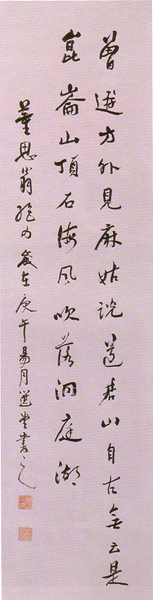 曾遊方外見麻姑說道君山自古無云是
崑崙山頂石海風吹落洞庭湖
董思翁 歲在庚午昜月選堂書之